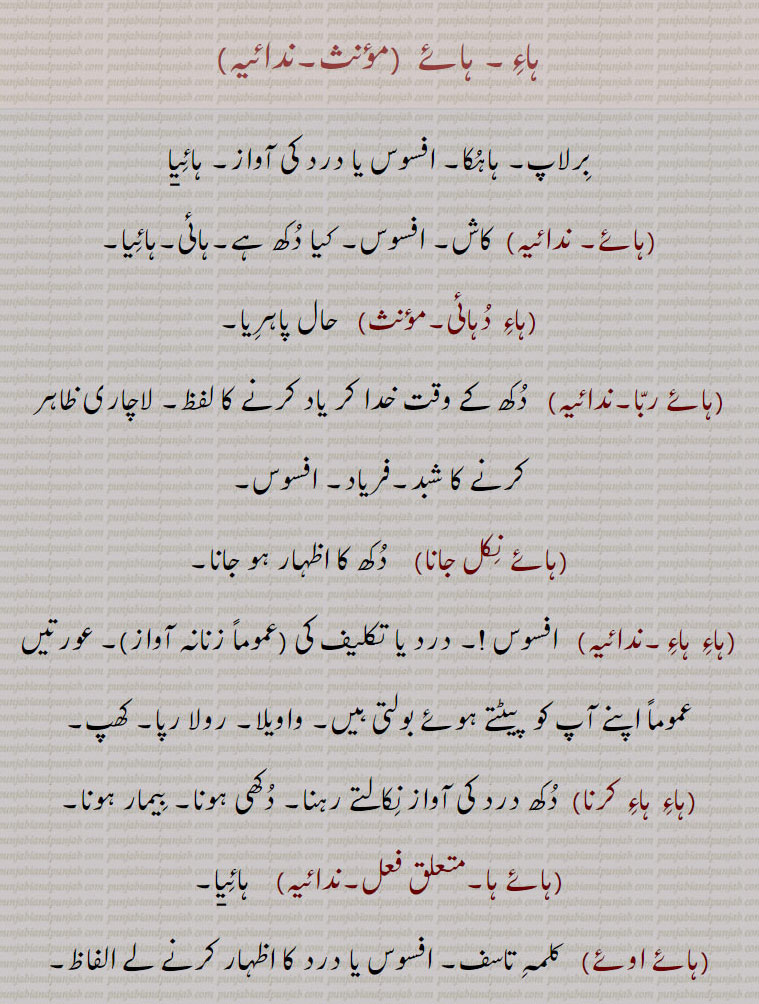 ہاءِ ۔ ہائے (مؤنث۔ندائیہ)
بِرلاپ۔ ہاہُکا۔ افسوس یا درد کی آواز۔ ہائِیا
(ہائے۔ ندائیہ) کاش۔ افسوس۔ کیا دُکھ ہے۔ہائی۔ہائِیا۔
(ہاءِ دُہائی۔مؤنث) حال پاہرِیا۔
(ہائے ربّا۔ندائیہ) دُکھ کے وقت خدا کر یاد کرنے کا لفظ۔ لاچاری ظاہر
کرنے کا شبد۔فریاد۔ افسوس۔
(ہائے نِکل جانا) دُکھ کا اظہار ہو جانا۔
(ہاءِ ہاءِ ۔ندائیہ) افسوس !۔ درد یا تکلیف کی (عموماً زنانہ آواز)۔ عورتیں
عموماً اپنے آپ کو پیٹتے ہوئے بولتی ہیں۔ واویلا۔ رولا رپا۔ کھپ۔
(ہاءِ ہاءِ کرنا) دُکھ درد کی آواز نِکالتے رہنا۔ دُکھی ہونا۔ بِیمار ہونا۔
(ہائے ہا۔متعلق فعل۔ندائیہ) ہائِیا۔
(ہائے اوئے) کلمہِ تاسف۔ افسوس یا درد کا اظہار کرنے لے الفاظ۔